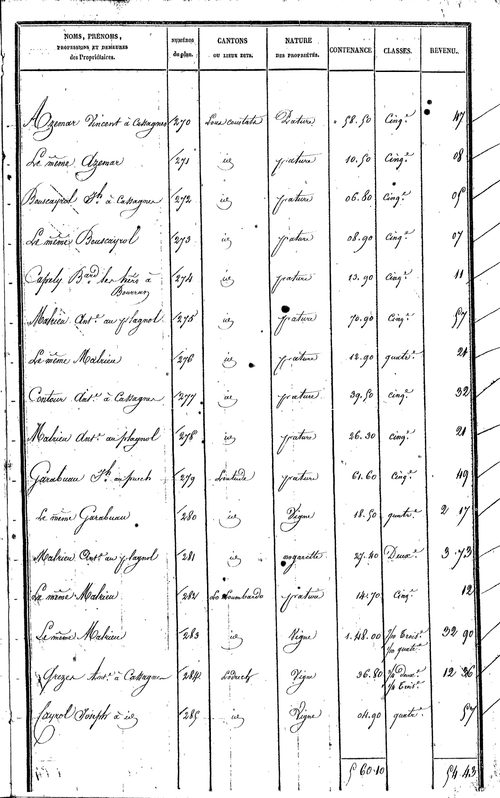 NOMS, PRÉNOMS, PROFESSIONS ET DEMEURES des Propriétaires. NUMÉROS du plan. CANTONS OU LIEUX DITS. NATURE DES PROPRIÉTÉS. CONTENANCE. CLASSES. REVENU.
Azemar Vincent à Cassagnes 270 Pature 58.50 Cinq.e 47
Le même Azemar 271 id pature 10.50 Cinq.e 08
Bouscayrol Jh. à Cassagnes 272 id pature 06.80 Cinq.e 05
Le même Bouscayrol 273 id pature 08.90 Cinq.e 07
Bard. les hers à 274 id pature 13.90 Cinq.e 11
Malrieu Ant.e au plagnol 275 id pature 70.90 Cinq.e 57
Le même Malrieu 276 id pature 12.90 quatr.e 24
Contour Ant.e à Cassagnes 277 id pature 39.50 cinq.e 32
Malrieu Ant.e au plagnol 278 id pature 26.30 cinq.e 21
Garabuau Jh. au puech 279 pature 61.60 Cinq.e 49
Le même Garabuau 280 id Vigne 18.50 quatr.e 2 17
Malrieu Ant.e au plagnol 281 id 27.40 Deux.e 3.73
Le même Malrieu 282 Le Loumbardo pature 14.70 Cinq.e 12
Le même Malrieu 283 id Vigne 1.48.00 p/o Trois.e 32 90
p/o quatr.e
Grezes Ant.e à Cassagnes 284 Vigne 36.80 p/o deux.e 12 36
p/o Trois.e
Cayrol Joseph à id 285 id Vigne 04.90 quatr.e 57
5 60.10 54.43